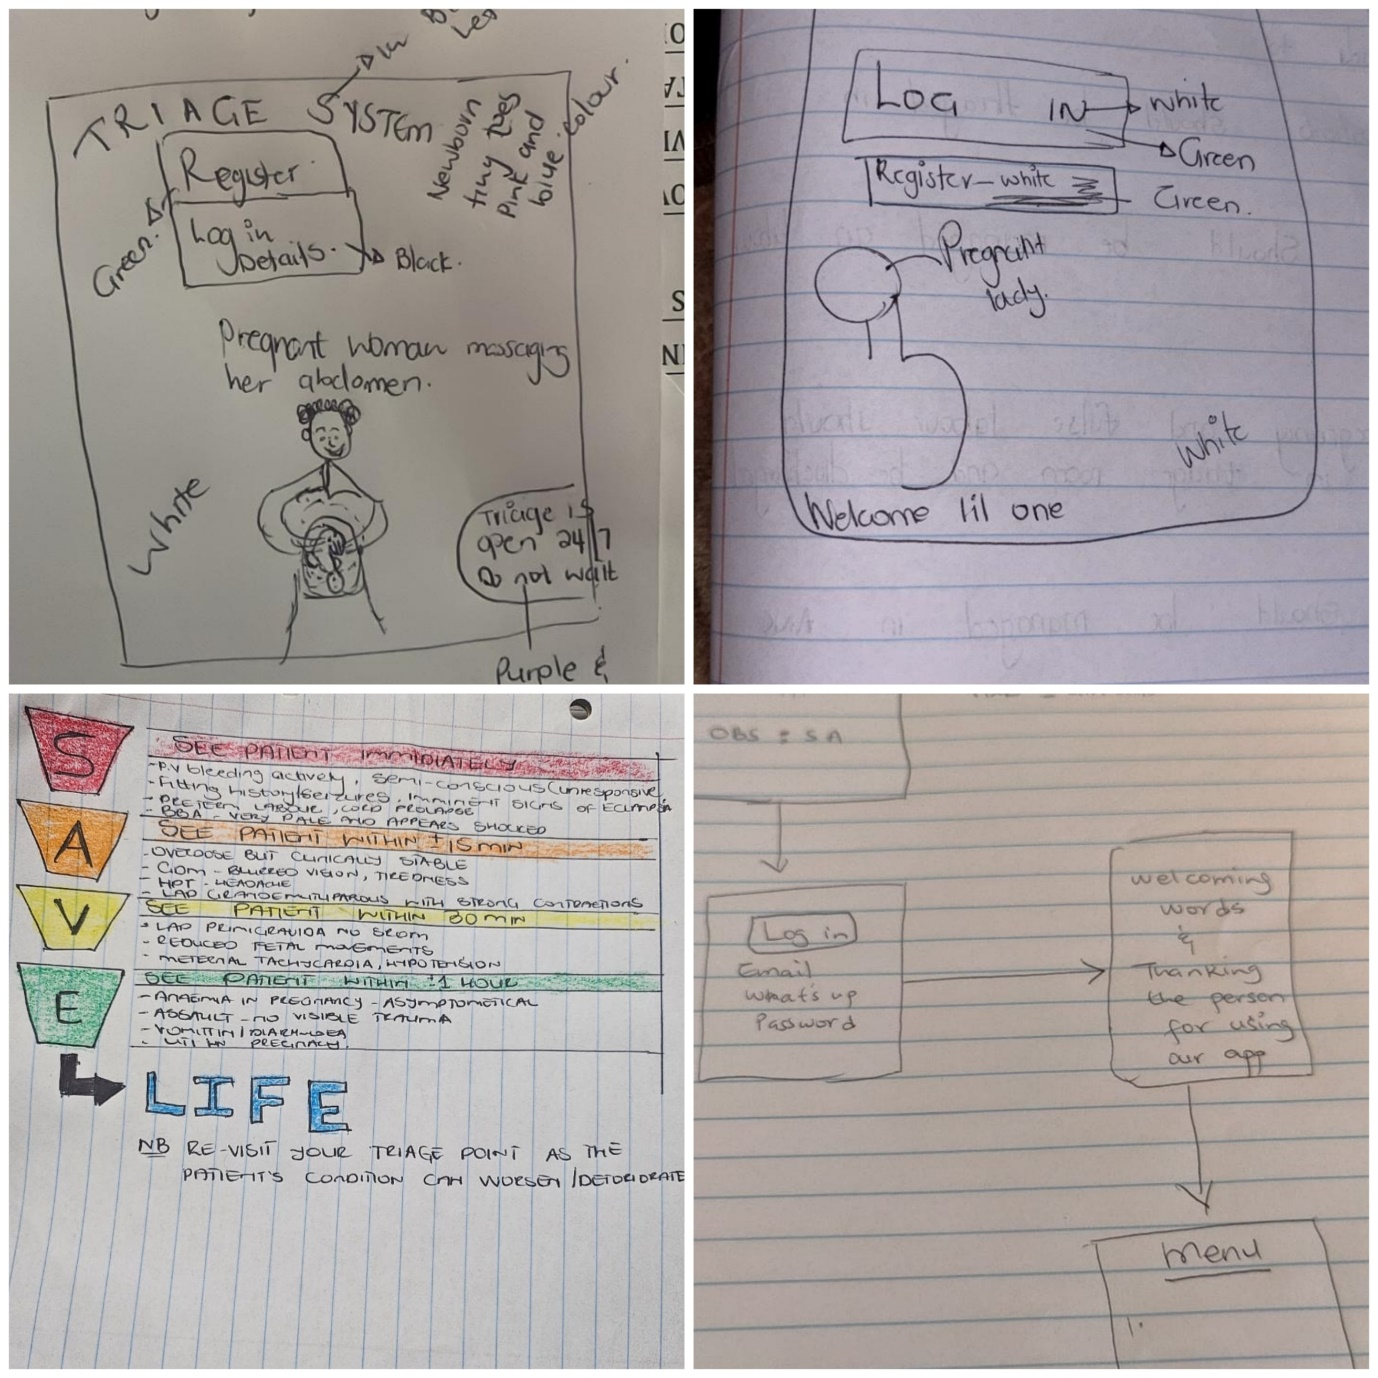 TRIAGE SYSTEM
Newborn
tiny toes
pink and
blue colour.
Register
Log in
Details.
Black.
Green.
Pregnant woman massaging
her abdomen.
White
Triage is
open 24/7
Do not wait
Purple &
LOG IN
white
Green
Register - white
Green.
Pregnant
lady.
white
Welcome lil one
S
SEE PATIENT IMMIDIATELY
- P.V bleeding actively, SEMI-CONSCIOUS (unresponsive
- Fitting history/seizures, IMMINENT SIGNS OF
- PRETERM LABOUR, CORD PROLAPSE
- BBA - VERY PALE AND APPEARS SHOCKED
A
SEE PATIENT WITHIN ± 15 MIN
- OVERDOSE BUT CLINICALLY STABLE
- GDM - BLURRED VISION, TIREDNESS
- HPT - HEADACHE
- LAP WITH STRONG CONTRACTIONS
V
SEE PATIENT WITHIN 30 MIN
- LAP PRIMIGRAVIDA NO SROM
- REDUCED FETAL MOVEMENTS
- METERNAL TACHYCARDIA, HYPOTENSION
E
SEE PATIENT WITHIN ±1 HOUR
- ANAEMIA IN PREGNANCY - ASYMPTOMETICAL
- ASSAULT - NO VISIBLE TRAUMA
- VOMITTIN/DIARHHOEA
- UTI IN PREGNACY.
LIFE
NB RE-VISIT YOUR TRIAGE POINT AS THE
PATIENT'S CONDITION CAN WORSEN/DETORIORATE
OBS : SA
Log in
Email
What's up
Password
welcoming
words
&
Thanking
the person
for using
our app
Menu
1.